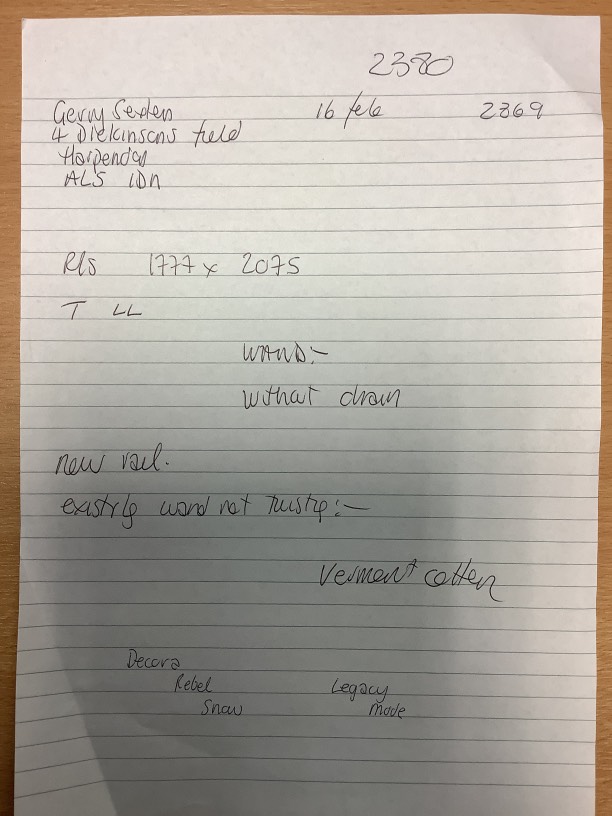 2380
Gerry Sexton 16 feb 2369
4 Dickinsons field
Harpenden
AL5 1DN
R/S 1777 x 2075
T LL
WAND:-
without chain
new rail.
existing wand not twisting:-
Vermont cotten
Decora
Rebel Legacy
Snow mode